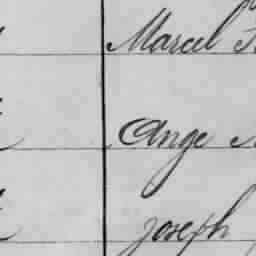 Marcel
Ange
Joseph